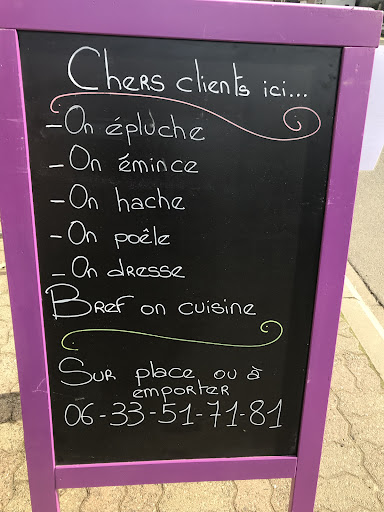 Chers clients ici...
- On épluche
- On émince
- On hache
- On poêle
- On dresse
Bref on cuisine
Sur place ou à
emporter
06-33-51-71-81